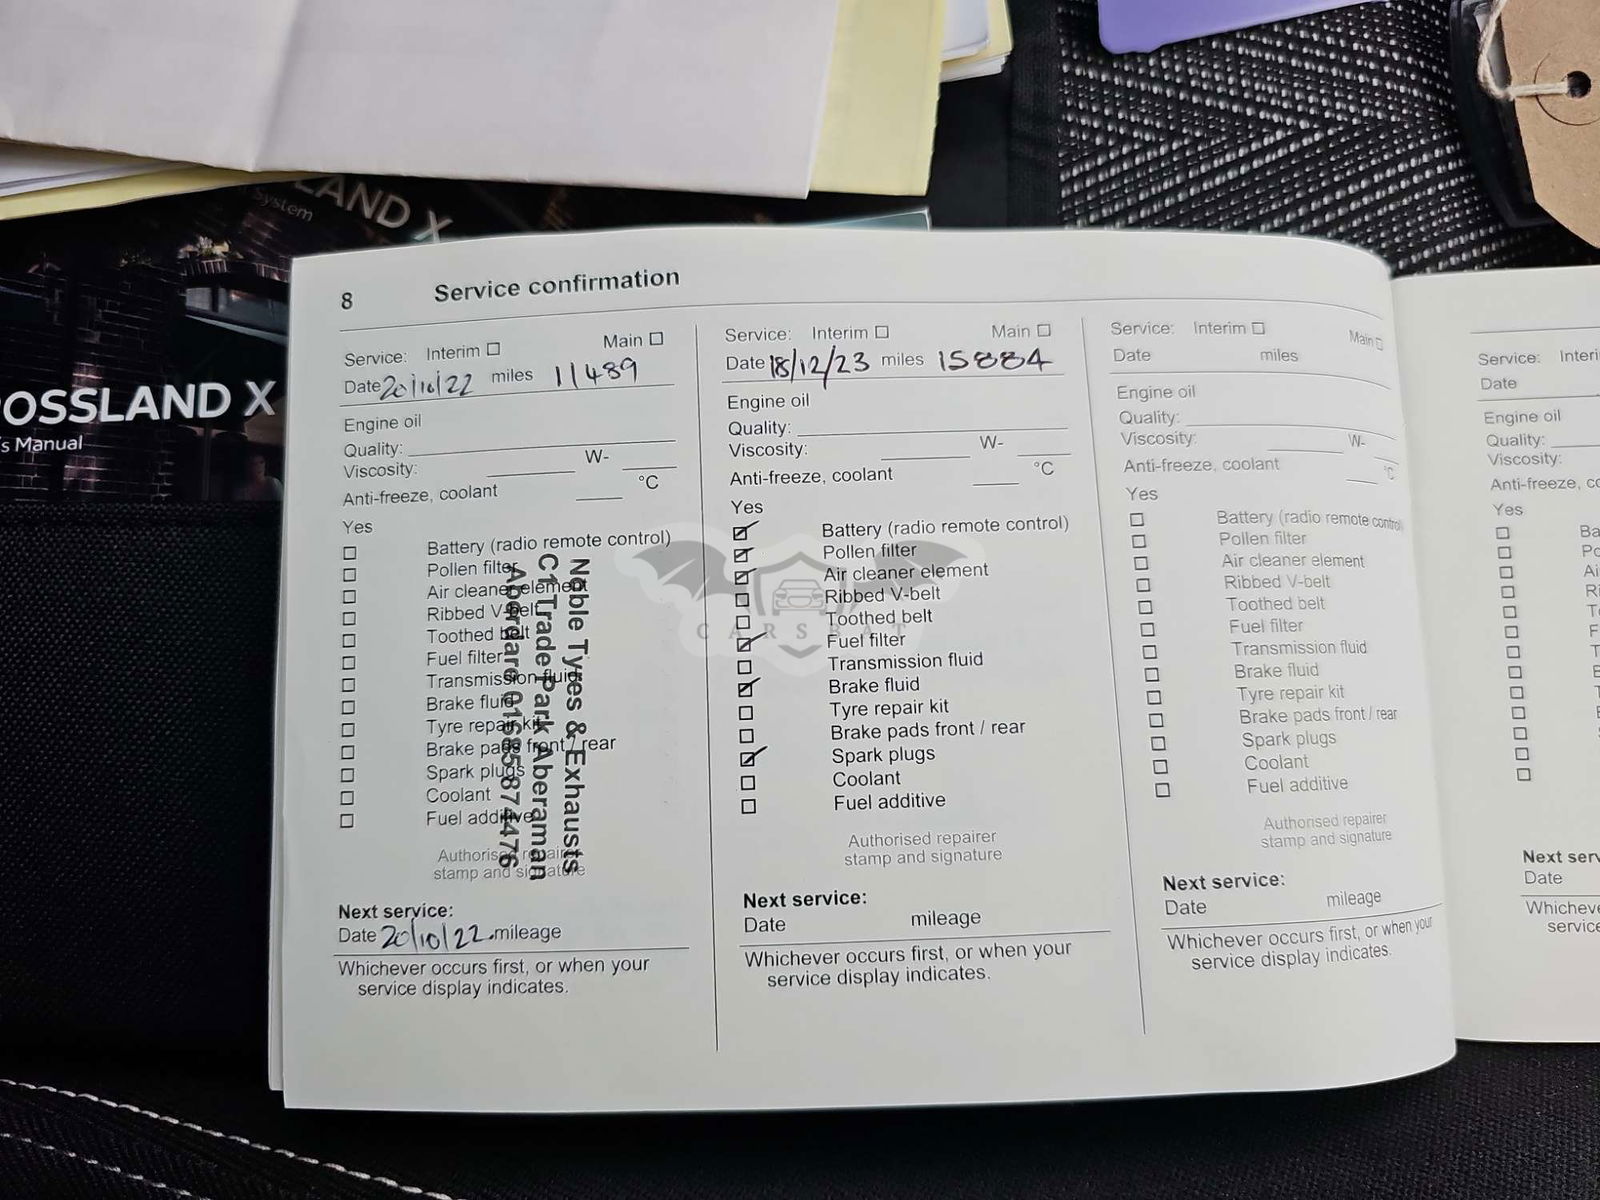 LAND X
System
OSSLAND X
's Manual
8 Service confirmation
Service: Interim ☐ Main ☐
Date 20/10/22 miles 11489
Engine oil
Quality:
Viscosity: W-
Anti-freeze, coolant °C
Yes
☐ Battery (radio remote control)
☐ Pollen filter
☐ Air cleaner element
☐ Ribbed V-belt
☐ Toothed belt
☐ Fuel filter
☐ Transmission fluid
☐ Brake fluid
☐ Tyre repair kit
☐ Brake pads front / rear
☐ Spark plugs
☐ Coolant
☐ Fuel additive
Authorised repairer
stamp and signature
Noble Tyres & Exhausts
C1 Trade Park Aberaman
Aberdare 01685 874476
Next service:
Date 20/10/22. mileage
Whichever occurs first, or when your
service display indicates.
Service: Interim ☐ Main ☐
Date 18/12/23 miles 15884
Engine oil
Quality:
Viscosity: W-
Anti-freeze, coolant °C
Yes
☑ Battery (radio remote control)
☑ Pollen filter
☑ Air cleaner element
☐ Ribbed V-belt
☐ Toothed belt
☑ Fuel filter
☐ Transmission fluid
☑ Brake fluid
☐ Tyre repair kit
☐ Brake pads front / rear
☑ Spark plugs
☐ Coolant
☐ Fuel additive
Authorised repairer
stamp and signature
Next service:
Date mileage
Whichever occurs first, or when your
service display indicates.
CARSBAT
Service: Interim ☐ Main ☐
Date miles
Engine oil
Quality:
Viscosity: W-
Anti-freeze, coolant °C
Yes
☐ Battery (radio remote control)
☐ Pollen filter
☐ Air cleaner element
☐ Ribbed V-belt
☐ Toothed belt
☐ Fuel filter
☐ Transmission fluid
☐ Brake fluid
☐ Tyre repair kit
☐ Brake pads front / rear
☐ Spark plugs
☐ Coolant
☐ Fuel additive
Authorised repairer
stamp and signature
Next service:
Date mileage
Whichever occurs first, or when your
service display indicates.
Service: Interi
Date
Engine oil
Quality:
Viscosity:
Anti-freeze, co
Yes
☐ Ba
☐ Po
☐ Ai
☐ Ri
☐ To
☐ F
☐ T
☐ B
Next serv
Date
Whicheve
service